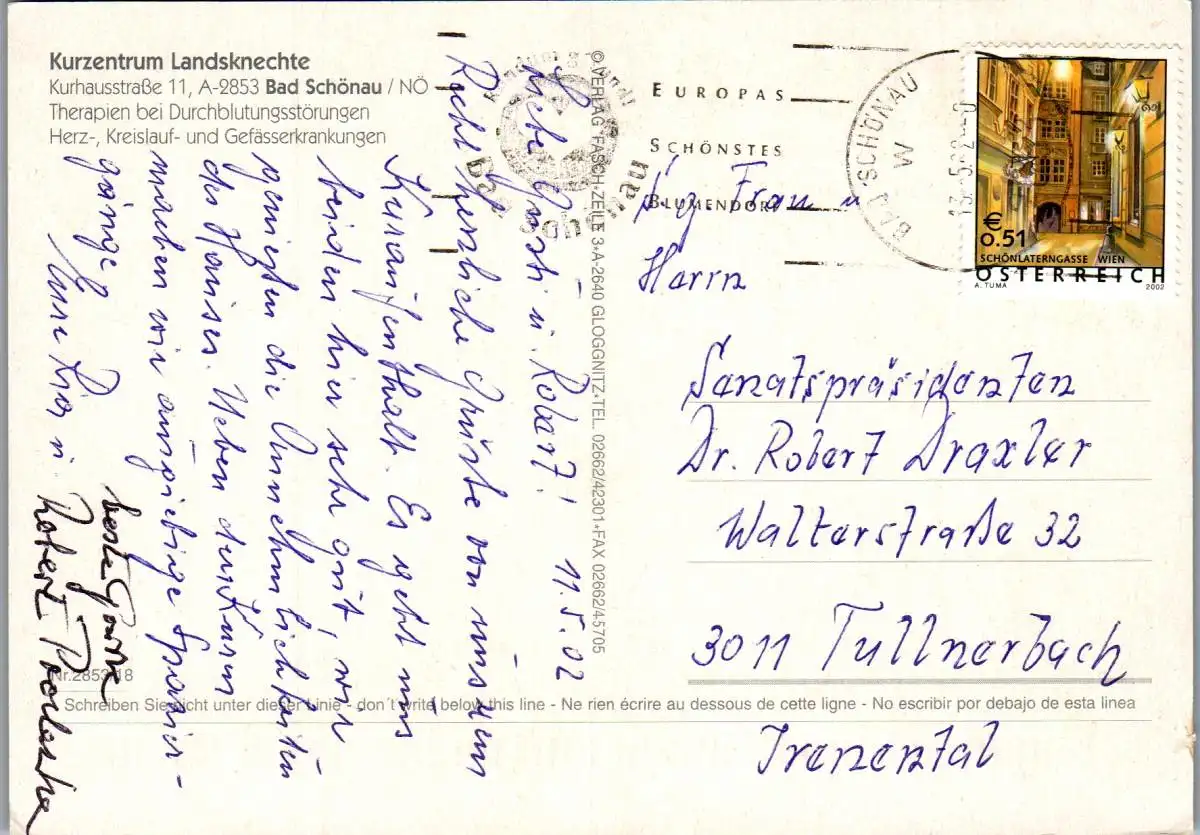 Kurzentrum Landsknechte
Kurhausstraße 11, A-2853 Bad Schönau / NÖ
Therapien bei Durchblutungsstörungen
Herz-, Kreislauf- und Gefässerkrankungen
Liebe u. Robert! 11.5.02
Recht herzliche Grüße von unserem
Kuraufenthalt. Es geht uns
beiden hier sehr gut, wir
genießen die Annehmlichkeiten
des Hauses. Neben den Kuren
machen wir ausgiebige Spazier-
gänge
u.
beste Grüße
Robert
Nr.2853/18
© VERLAG FASCH·ZEILE 3·A-2640 GLOGGNITZ·TEL. 02662/42301·FAX 02662/4-5705
Bad Schönau
EUROPAS
SCHÖNSTES
BLUMENDORF
BAD SCHÖNAU
W
€
0.51
SCHÖNLATERNGASSE WIEN
ÖSTERREICH
A. TUMA 2002
S.g. Frau u
Herrn
Senatspräsidenten
Dr. Robert Draxler
Walterstraße 32
3011 Tullnerbach
Schreiben Sie nicht unter dieser Linie - don´t write below this line - Ne rien écrire au dessous de cette ligne - No escribir por debajo de esta linea
Irenental